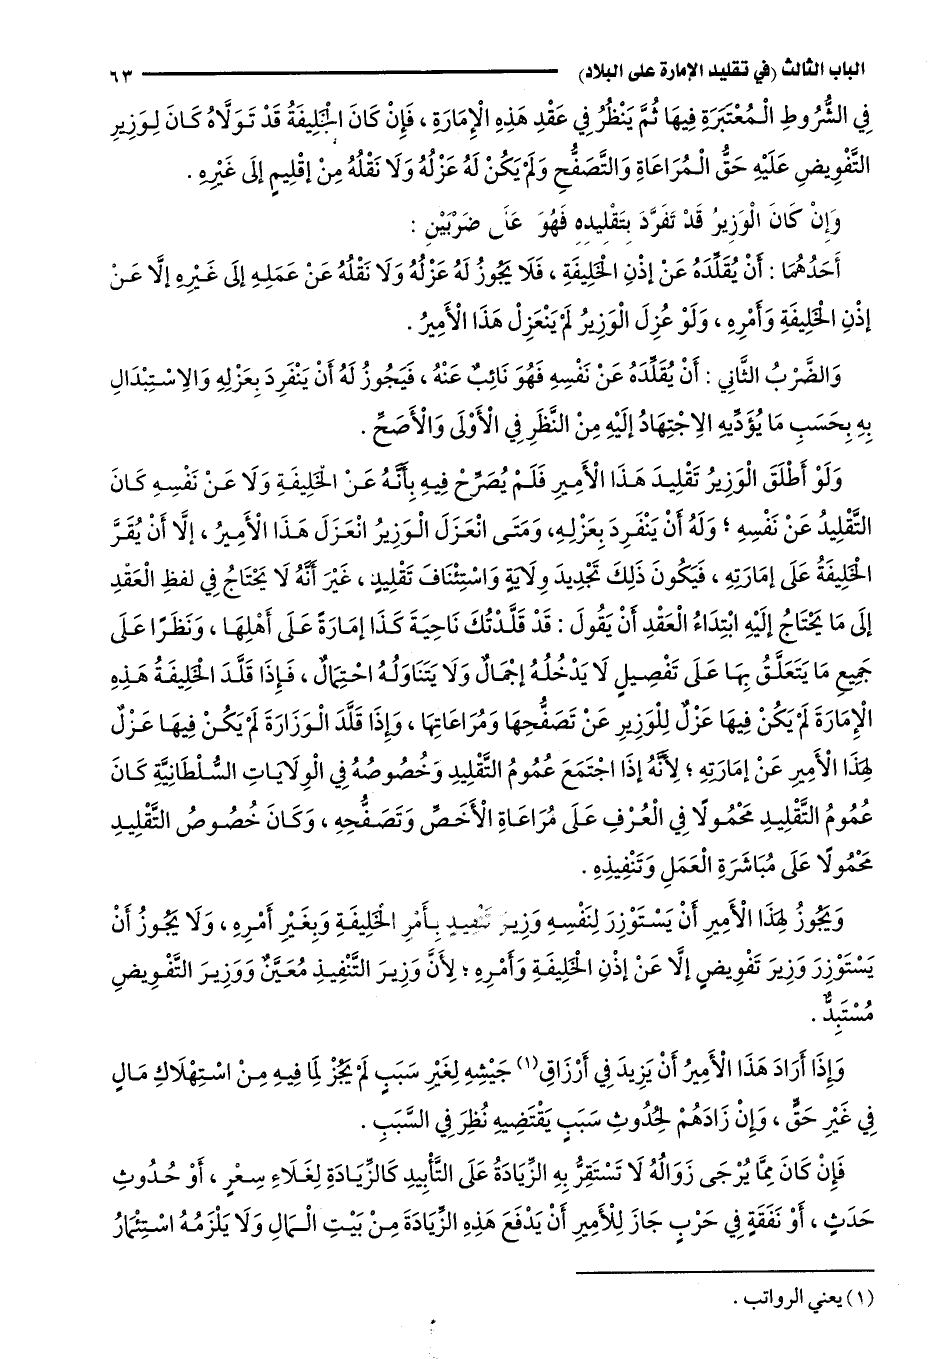 الباب الثالث (في تقليد الإمارة على البلاد) ٦٣
فِي الشُّرُوطِ الْمُعْتَبَرَةِ فِيهَا ثُمَّ يَنْظُرُ فِي عَقْدِ هَذِهِ الْإِمَارَةِ ، فَإِنْ كَانَ الْخَلِيفَةُ قَدْ تَوَلَّاهُ كَانَ لِوَزِيرِ
التَّفْوِيضِ عَلَيْهِ حَقُّ الْمُرَاعَاةِ وَالتَّصَفُّحِ وَلَمْ يَكُنْ لَهُ عَزْلُهُ وَلَا نَقْلُهُ مِنْ إِقْلِيمٍ إِلَى غَيْرِهِ .
وَإِنْ كَانَ الْوَزِيرُ قَدْ تَفَرَّدَ بِتَقْلِيدِهِ فَهُوَ عَلَى ضَرْبَيْنِ :
أَحَدُهُمَا : أَنْ يُقَلِّدَهُ عَنْ إِذْنِ الْخَلِيفَةِ ، فَلَا يَجُوزُ لَهُ عَزْلُهُ وَلَا نَقْلُهُ عَنْ عَمَلِهِ إِلَى غَيْرِهِ إِلَّا عَنْ
إِذْنِ الْخَلِيفَةِ وَأَمْرِهِ ، وَلَوْ عُزِلَ الْوَزِيرُ لَمْ يَنْعَزِلْ هَذَا الْأَمِيرُ .
وَالضَّرْبُ الثَّانِي : أَنْ يُقَلِّدَهُ عَنْ نَفْسِهِ فَهُوَ نَائِبٌ عَنْهُ ، فَيَجُوزُ لَهُ أَنْ يَنْفَرِدَ بِعَزْلِهِ وَالِاسْتِبْدَالِ
بِهِ بِحَسَبِ مَا يُؤَدِّيهِ الِاجْتِهَادُ إِلَيْهِ مِنْ النَّظَرِ فِي الْأَوْلَى وَالْأَصَحِّ .
وَلَوْ أَطْلَقَ الْوَزِيرُ تَقْلِيدَ هَذَا الْأَمِيرِ فَلَمْ يُصَرِّحْ فِيهِ بِأَنَّهُ عَنْ الْخَلِيفَةِ وَلَا عَنْ نَفْسِهِ كَانَ
التَّقْلِيدُ عَنْ نَفْسِهِ ؛ وَلَهُ أَنْ يَنْفَرِدَ بِعَزْلِهِ، وَمَتَى انْعَزَلَ الْوَزِيرُ انْعَزَلَ هَذَا الْأَمِيرُ ، إِلَّا أَنْ يُقَرَّ
الْخَلِيفَةُ عَلَى إِمَارَتِهِ ، فَيَكُونَ ذَلِكَ تَجْدِيدَ وِلَايَةٍ وَاسْتِئْنَافَ تَقْلِيدٍ ، غَيْرَ أَنَّهُ لَا يَحْتَاجُ فِي لَفْظِ الْعَقْدِ
إِلَى مَا يَحْتَاجُ إِلَيْهِ ابْتِدَاءُ الْعَقْدِ أَنْ يَقُولَ : قَدْ قَلَّدْتُكَ نَاحِيَةَ كَذَا إِمَارَةً عَلَى أَهْلِهَا ، وَنَظَرًا عَلَى
جَمِيعِ مَا يَتَعَلَّقُ بِهَا عَلَى تَفْصِيلٍ لَا يَدْخُلُهُ إِجْمَالٌ وَلَا يَتَنَاوَلُهُ احْتِمَالٌ ، فَإِذَا قَلَّدَ الْخَلِيفَةُ هَذِهِ
الْإِمَارَةَ لَمْ يَكُنْ فِيهَا عَزْلٌ لِلْوَزِيرِ عَنْ تَصَفُّحِهَا وَمُرَاعَاتِهَا ، وَإِذَا قَلَّدَ الْوَزَارَةَ لَمْ يَكُنْ فِيهَا عَزْلٌ
لِهَذَا الْأَمِيرِ عَنْ إِمَارَتِهِ ؛ لِأَنَّهُ إِذَا اجْتَمَعَ عُمُومُ التَّقْلِيدِ وَخُصُوصُهُ فِي الْوِلَايَاتِ السُّلْطَانِيَّةِ كَانَ
عُمُومُ التَّقْلِيدِ مَحْمُولًا فِي الْعُرْفِ عَلَى مُرَاعَاةِ الْأَخَصِّ وَتَصَفُّحِهِ ، وَكَانَ خُصُوصُ التَّقْلِيدِ
مَحْمُولًا عَلَى مُبَاشَرَةِ الْعَمَلِ وَتَنْفِيذِهِ .
وَيَجُوزُ لِهَذَا الْأَمِيرِ أَنْ يَسْتَوْزِرَ لِنَفْسِهِ وَزِيرَ تَنْفِيذٍ بِأَمْرِ الْخَلِيفَةِ وَبِغَيْرِ أَمْرِهِ ، وَلَا يَجُوزُ أَنْ
يَسْتَوْزِرَ وَزِيرَ تَفْوِيضٍ إِلَّا عَنْ إِذْنِ الْخَلِيفَةِ وَأَمْرِهِ ؛ لِأَنَّ وَزِيرَ التَّنْفِيذِ مُعَيَّنٌ وَوَزِيرَ التَّفْوِيضِ
مُسْتَبِدٌّ .
وَإِذَا أَرَادَ هَذَا الْأَمِيرُ أَنْ يَزِيدَ فِي أَرْزَاقِ(١) جَيْشِهِ لِغَيْرِ سَبَبٍ لَمْ يَجُزْ لِمَا فِيهِ مِنْ اسْتِهْلَاكِ مَالٍ
فِي غَيْرِ حَقٍّ ، وَإِنْ زَادَهُمْ لِحُدُوثِ سَبَبٍ يَقْتَضِيهِ نُظِرَ فِي السَّبَبِ .
فَإِنْ كَانَ مِمَّا يُرْجَى زَوَالُهُ لَا تَسْتَقِرُّ بِهِ الزِّيَادَةُ عَلَى التَّأْبِيدِ كَالزِّيَادَةِ لِغَلَاءِ سِعْرٍ ، أَوْ حُدُوثِ
حَدَثٍ ، أَوْ نَفَقَةٍ فِي حَرْبٍ جَازَ لِلْأَمِيرِ أَنْ يَدْفَعَ هَذِهِ الزِّيَادَةَ مِنْ بَيْتِ الْمَالِ وَلَا يَلْزَمُهُ اسْتِئْمَارُ
(١) يعني الرواتب .